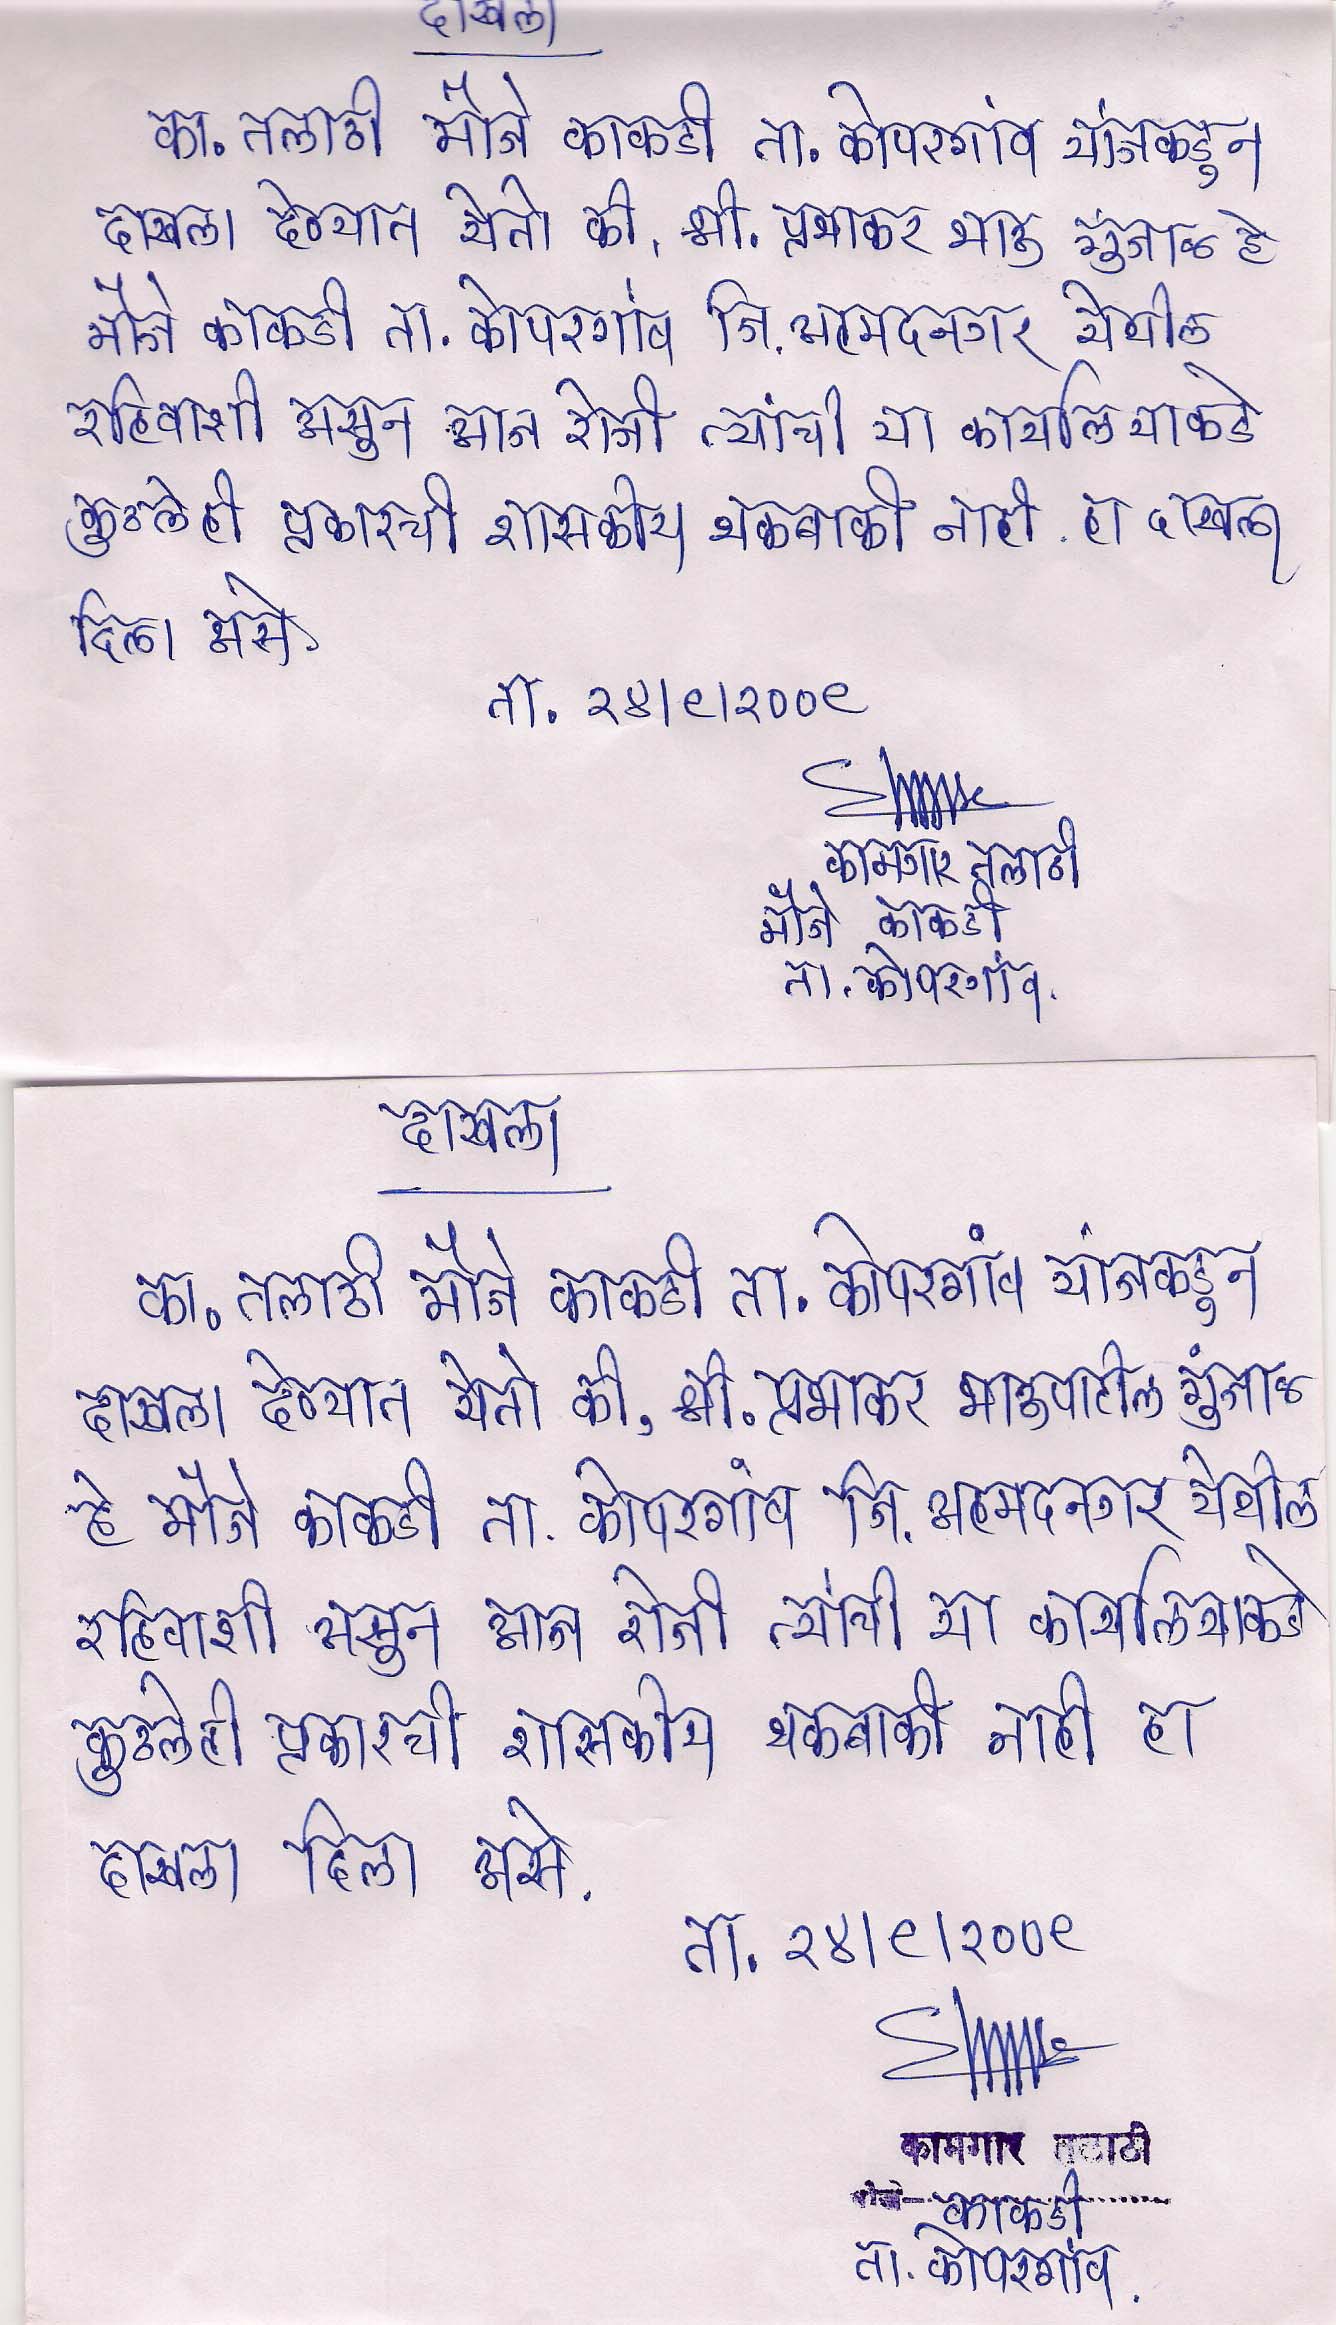 दाखला
का. तलाठी मौजे काकडी ता. कोपरगांव यांजकडून
दाखला देण्यात येतो की, श्री. प्रभाकर भाऊ गुंजाळ हे
मौजे काकडी ता. कोपरगांव जि. अहमदनगर येथील
रहिवाशी असून आज रोजी त्यांची या कार्यालयाकडे
कुठलेही प्रकारची शासकीय थकबाकी नाही. हा दाखला
दिला असे.
ता. २४/९/२००९
कामगार तलाठी
मौजे काकडी
ता. कोपरगांव.
दाखला
का. तलाठी मौजे काकडी ता. कोपरगांव यांजकडून
दाखला देण्यात येतो की, श्री. प्रभाकर भाऊपाटील गुंजाळ
हे मौजे काकडी ता. कोपरगांव जि. अहमदनगर येथील
रहिवाशी असून आज रोजी त्यांची या कार्यालयाकडे
कुठलेही प्रकारची शासकीय थकबाकी नाही हा
दाखला दिला असे.
ता. २४/९/२००९
कामगार तलाठी
मौजे- काकडी
ता. कोपरगांव.